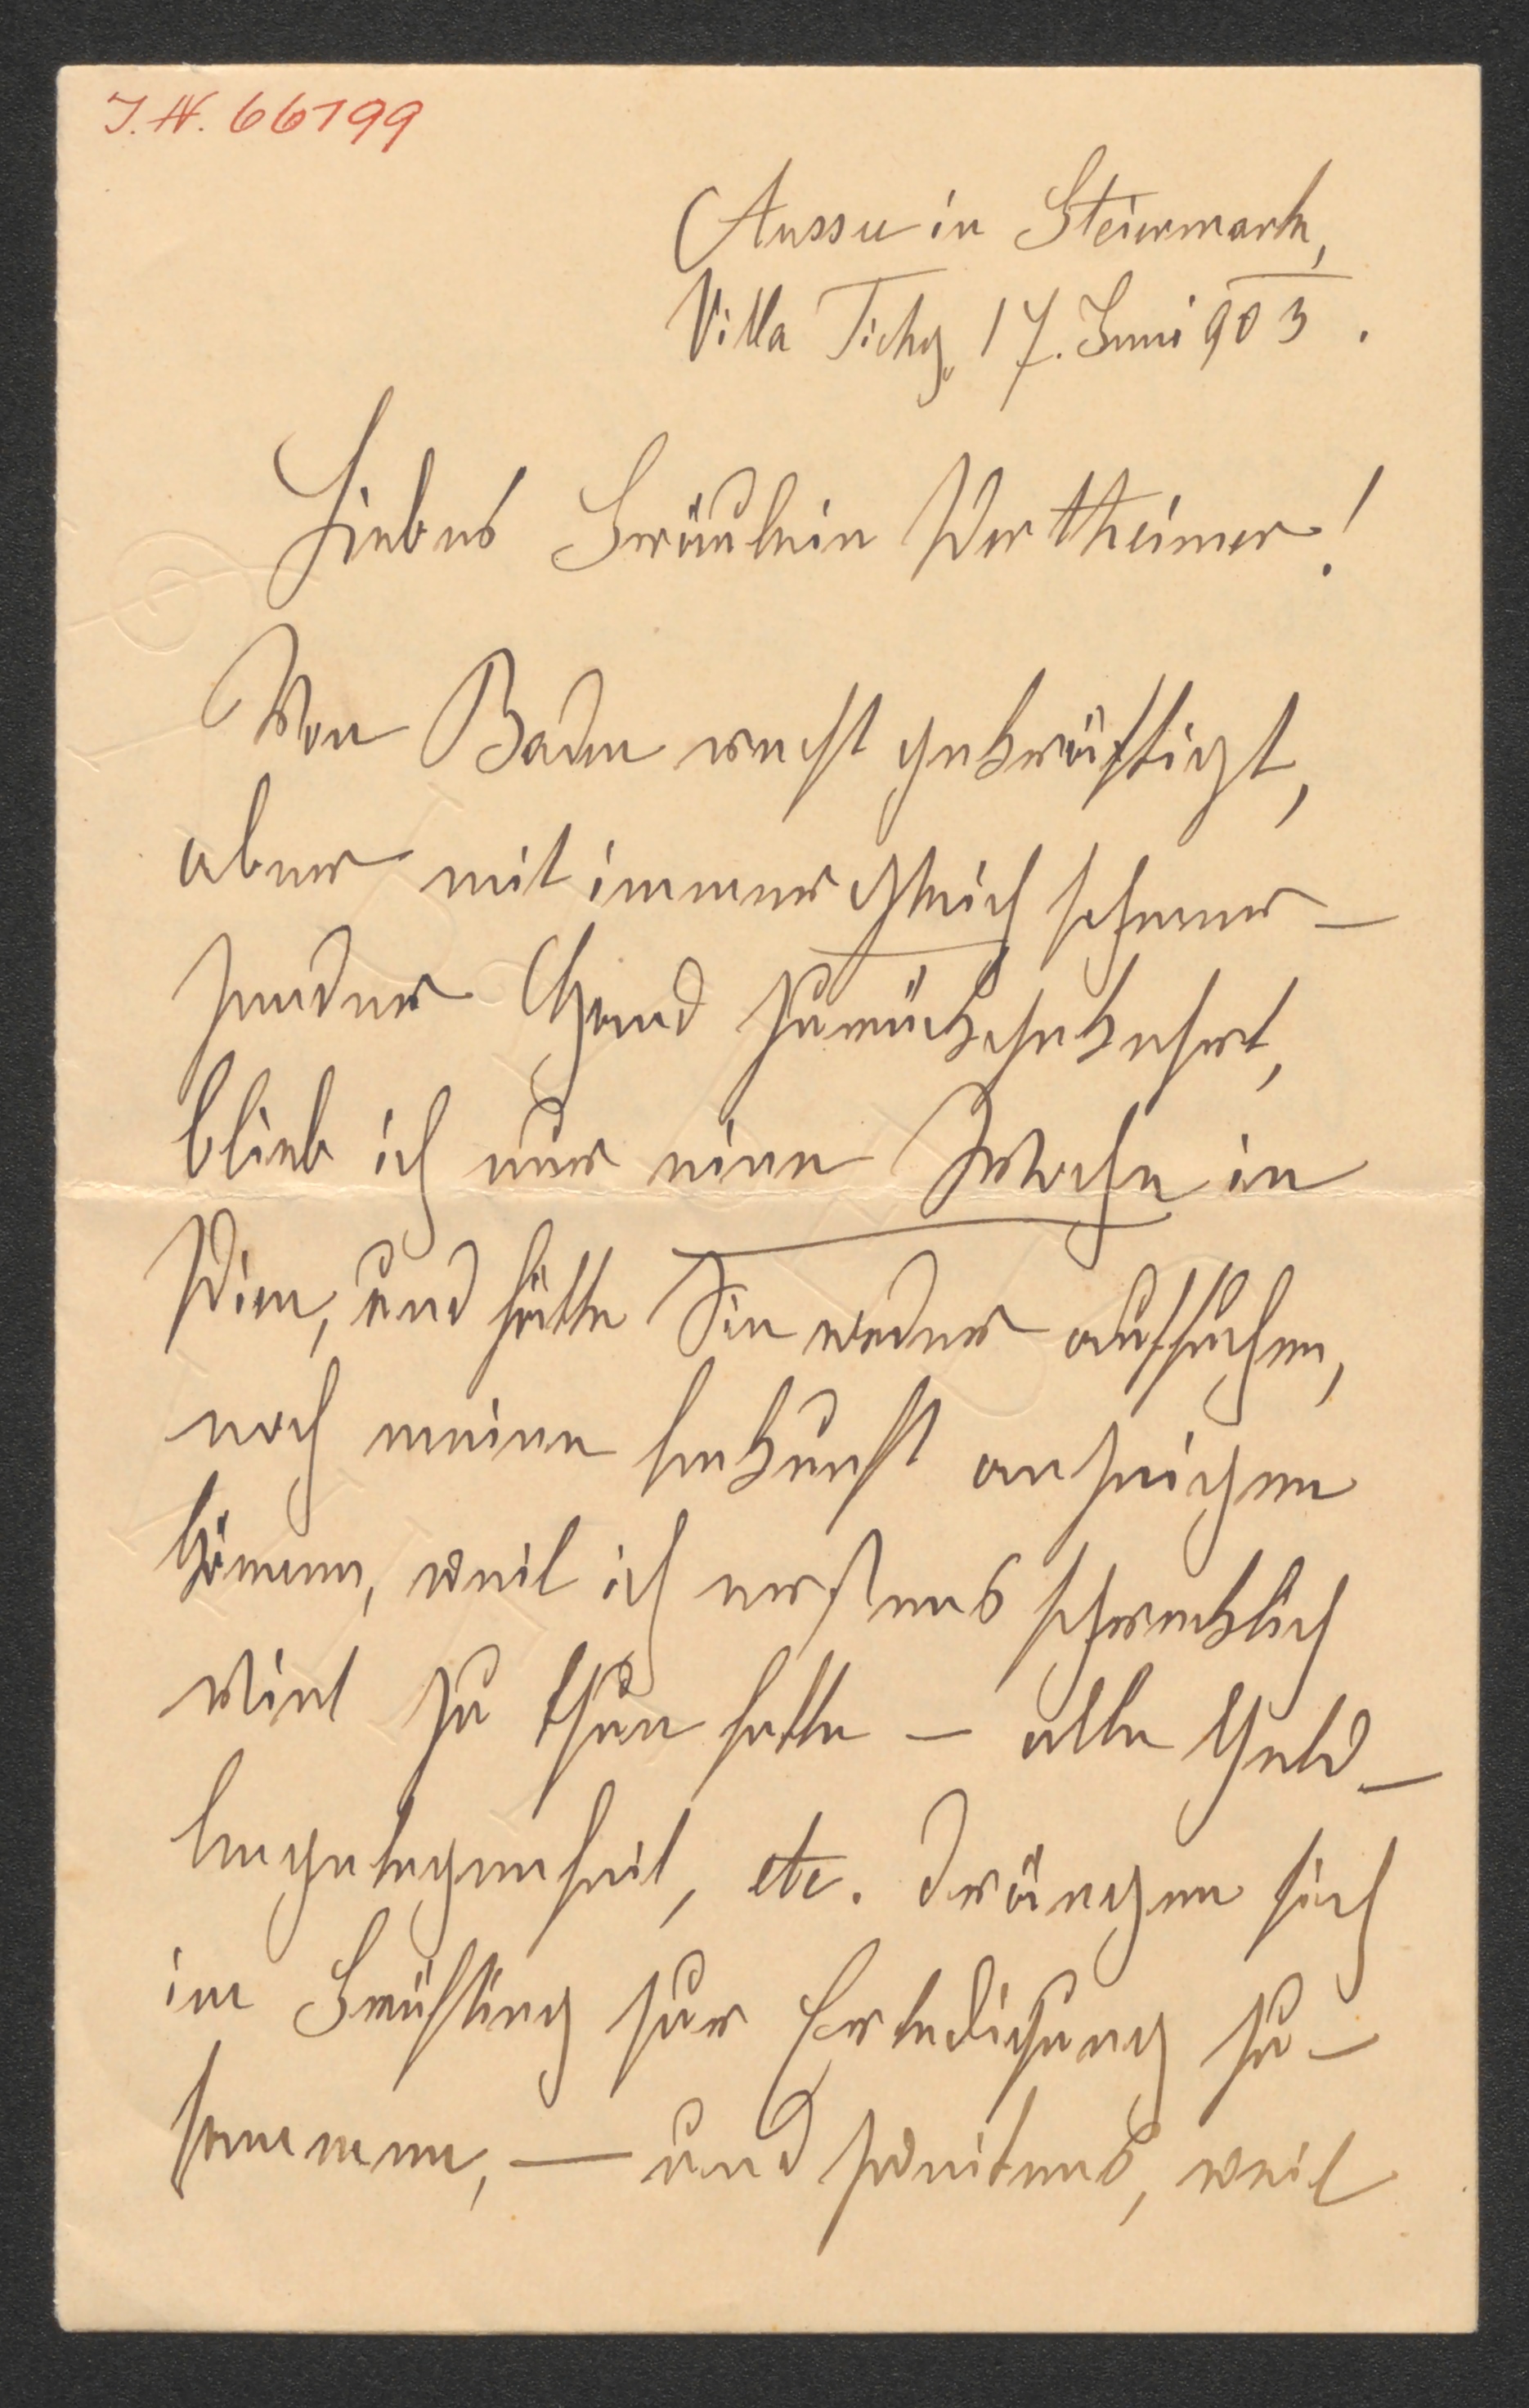 J. N. 66199
Aussee in Steiermark,
Villa Tichy, 17. Juni 903.
Liebes Fräulein Wertheimer!
Von Baden recht gekräftigt,
aber mit immer gleich schmer-
zender Hand zurückgekehrt,
blieb ich nur eine Woche in
Wien, und hätte Sie weder aufsuchen,
noch meine Ankunft anzeigen
können, weil ich erstens schrecklich
viel zu thun hatte – alle Geld-
Angelegenheit, etc. drängen sich
im Frühling zur Erledigung zu-
sammen, – und zweitens, weil